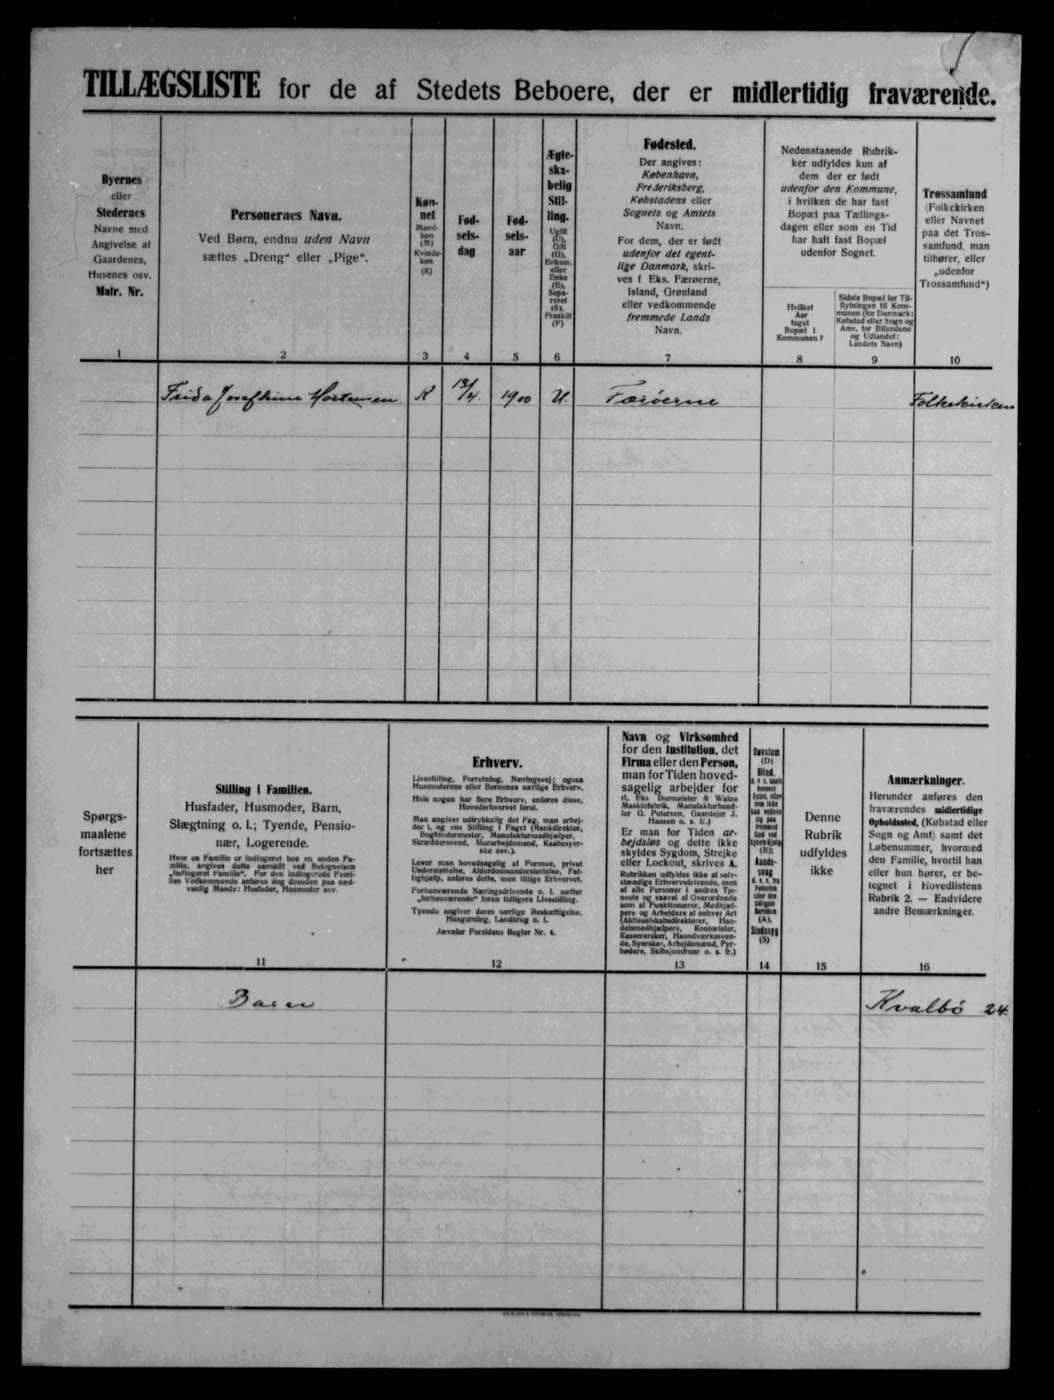 TILLÆGSLISTE for de af Stedets Beboere, der er midlertidig fraværende.
Byernes
eller
Stedernes
Navne med
Angivelse af
Gaardenes,
Husenes osv.
Matr. Nr.
1
Personernes Navn.
Ved Børn, endnu uden Navn
sættes „Dreng“ eller „Pige“.
2
Køn-
net
Mand-
køn
(M)
Kvinde-
køn
(K)
3
Fød-
sels-
dag
4
Fød-
sels-
aar
5
Ægte-
ska-
belig
Stil-
ling.
Ugift
(U),
Gift
(G),
Enkem.
eller
Enke
(E),
Sepa-
reret
(S),
Fraskilt
(F)
6
Fødested.
Der angives:
København,
Frederiksberg,
Købstadens eller
Sognets og Amtets
Navn.
For dem, der er født
udenfor det egent-
lige Danmark, skri-
ves f Eks. Færøerne,
Island, Grønland
eller vedkommende
fremmede Lands
Navn.
7
Nedenstaaende Rubrik-
ker udfyldes kun af
dem der er født
udenfor den Kommune,
i hvilken de har fast
Bopæl paa Tællings-
dagen eller som en Tid
har haft fast Bopæl
udenfor Sognet.
Hvilket
Aar
taget
Bopæl i
Kommunen?
8
Sidste Bopæl før Til-
flytningen til Kom-
munen (for Danmark:
Købstad eller Sogn og
Amt, for Bilandene
og Udlandet:
Landets Navn)
9
Trossamfund
(Folkekirken
eller Navnet
paa det Tros-
samfund, man
tilhører, eller
„udenfor
Trossamfund“)
10
Frida Josefhine Mortensen K 13/4 1900 U. Færøerne Folkekirken
Spørgs-
maalene
fortsættes
her
Stilling i Familien.
Husfader, Husmoder, Barn,
Slægtning o. l.; Tyende, Pensio-
nær, Logerende.
Hvor en Familie er indlogeret hos en anden Fa-
milie, angives dette særskilt ved Betegnelsen
„Indlogeret Familie“. For den indlogerede Fami-
lies Vedkommende anføres dog desuden paa sæd-
vanlig Maade: Husfader, Husmoder osv.
11
Erhverv.
Livsstilling, Forretning, Næringsvej; ogsaa
Husmoderens eller Børnenes særlige Erhverv.
Hvis nogen har flere Erhverv, anføres disse,
Hovederhvervet først.
Man angiver udtrykkelig det Fag, man arbej-
der i, og ens Stilling i Faget (Bankdirektør,
Bogbindermester, Manufakturmedhjælper,
Skræddersvend, Murarbejdsmand, Kaabesyer-
ske osv.).
Lever man hovedsagelig af Formue, privat
Understøttelse, Alderdomsunderstøttelse, Fat-
tighjælp, anføres dette, men tillige Erhvervet.
Forhenværende Næringsdrivende o. l. sætter
„forhenværende“ foran tidligere Livsstilling.
Tyende angiver deres særlige Beskæftigelse,
Husgerning, Landbrug o. l.
Jævnfør Forsidens Regler Nr. 4.
12
Navn og Virksomhed
for den Institution, det
Firma eller den Person,
man for Tiden hoved-
sagelig arbejder for
(f. Eks. Burmeister & Wains
Maskinfabrik, Manufakturhand-
ler O. Petersen, Gaardejer J.
Hansen o. s. fr.)
Er man for Tiden ar-
bejdsløs og dette ikke
skyldes Sygdom, Strejke
eller Lockout, skrives A.
Rubrikken udfyldes ikke af selv-
stændige Erhvervsdrivende, men
af alle Personer i andres Tje-
neste og saavel af Overordnede
som af Funktionærer, Medhjæl-
pere og Arbejdere af enhver Art
(Aktieselskabsdirektører, Han-
delsmedhjælpere, Kontorister,
Kasserersker, Haandværkssven-
de, Syersker, Arbejdsmænd, Fyr-
bødere, Skibsjomfruer o. s. fr.)
13
Døvstum
(D)
Blind,
(B);
Aands-
svag
(A),
Sindssyg
(S)
14
Denne
Rubrik
udfyldes
ikke
15
Anmærkninger.
Herunder anføres den
fraværendes midlertidige
Opholdssted, (Købstad eller
Sogn og Amt) samt det
Løbenummer, hvormed
den Familie, hvortil han
eller hun hører, er be-
tegnet i Hovedlistens
Rubrik 2. — Endvidere
andre Bemærkninger.
16
Barn Kvalbö 24